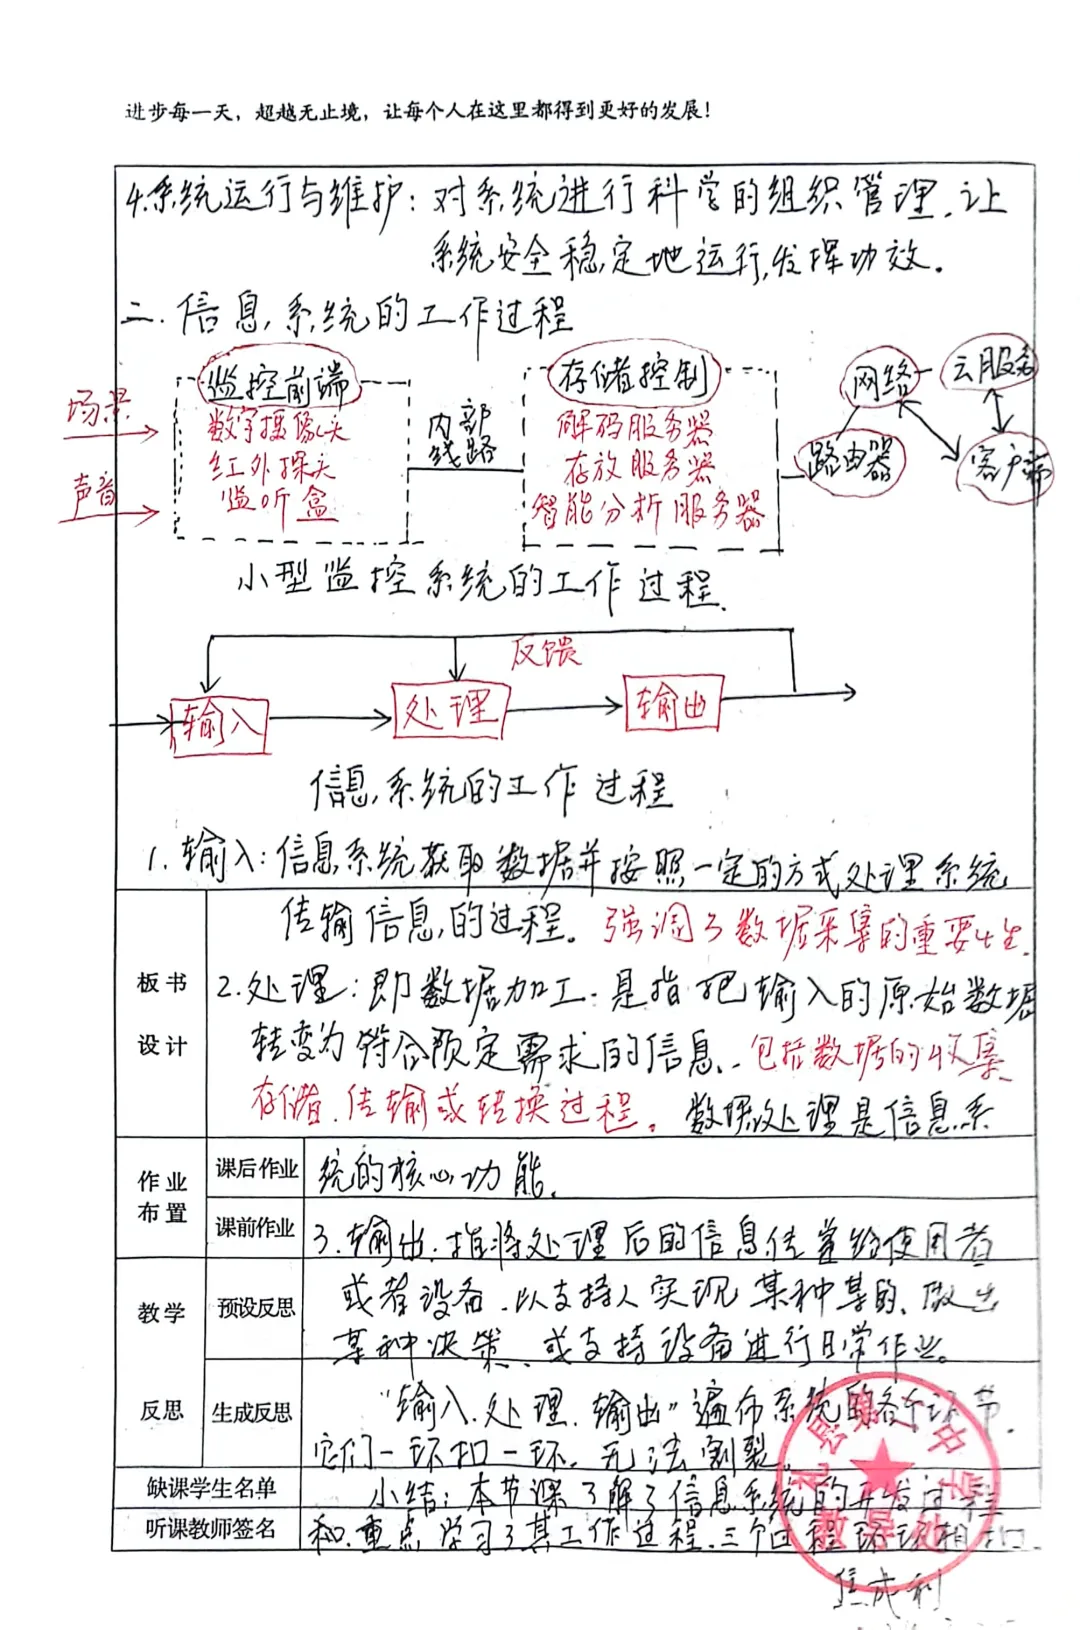 进步每一天，超越无止境，让每个人在这里都得到更好的发展！
4.系统运行与维护：对系统进行科学的组织管理，让
系统安全稳定地运行，发挥功效。
二.信息系统的工作过程
场景
声音
监控前端
数字摄像头
红外探头
监听盒
内部
线路
存储控制
解码服务器
存放服务器
智能分析服务器
网络
路由器
云服务
客户端
小型监控系统的工作过程.
反馈
输入
处理
输出
信息系统的工作过程
1.输入：信息系统获取数据并按照一定的方式处理系统
传输信息的过程。强调了数据采集的重要性.
板书
设计
2.处理：即数据加工.是指把输入的原始数据
转变为符合预定需求的信息.包括数据的收集、
存储.传输或转换过程。数据处理是信息系
作业
布置
课后作业
统的核心功能.
课前作业
3.输出.指将处理后的信息传
给使用者
教学
预设反思
或者设备.以支持人实现某种目的、做出
某种决策、或支持设备进行日常作业。
反思
生成反思
“输入.处理.输出”遍布系统的各个环节.
它们一环扣一环.无法割裂.
缺课学生名单
小结：本节课了解了信息系统的开发过程
听课教师签名
和重点学习了其工作过程.三个
教导处